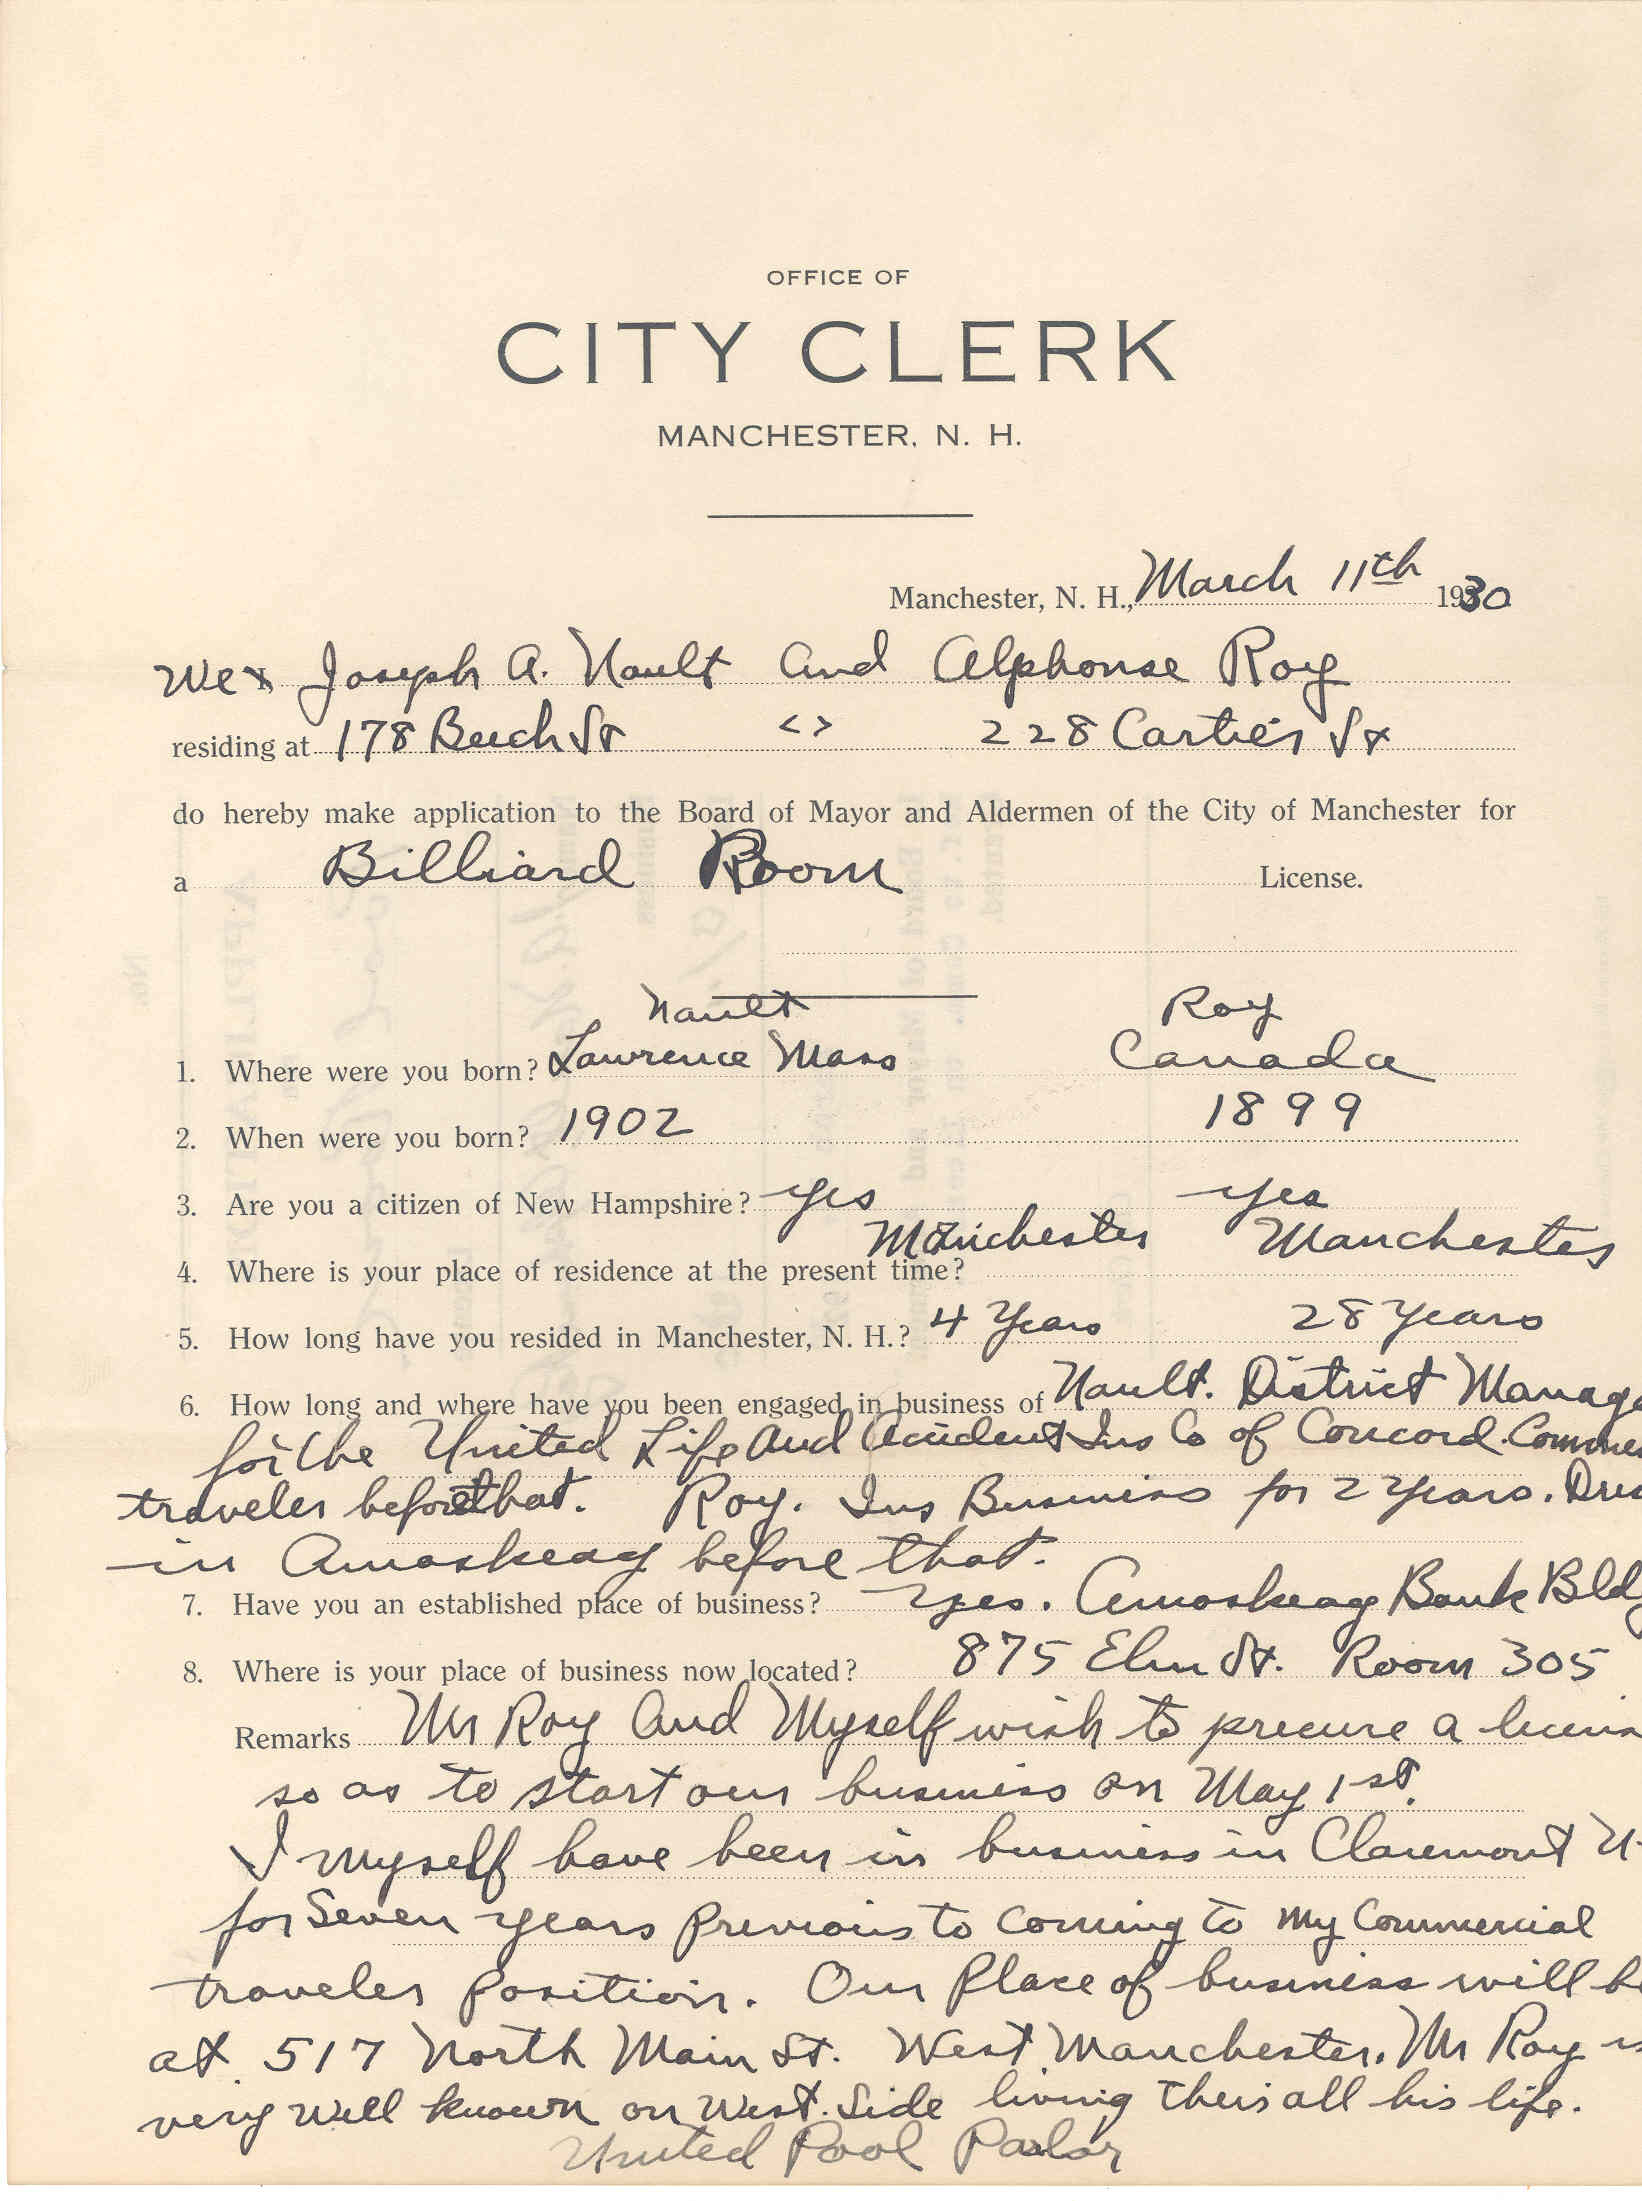 OFFICE OF
CITY CLERK
MANCHESTER, N. H.
Manchester, N. H., March 11th 1930
We x Joseph A. Nault and Alphonse Roy
residing at 178 Beech St <> 228 Cartier St
do hereby make application to the Board of Mayor and Aldermen of the City of Manchester for
a Billiard Room License.
Nault Roy
1. Where were you born? Lawrence Mass Canada
2. When were you born? 1902 1899
3. Are you a citizen of New Hampshire? yes yes
Manchester Manchester
4. Where is your place of residence at the present time?
5. How long have you resided in Manchester, N. H.? 4 Years 28 Years
6. How long and where have you been engaged in business of Nault. District Manage
for the United Life and Accident Ins Co of Concord. Comme
traveler before that. Roy. Ins Business for 2 Years.
in Amoskeag before that.
7. Have you an established place of business? Yes. Amoskeag Bank Bldg
8. Where is your place of business now located? 875 Elm St. Room 305
Remarks Mr Roy and Myself wish to precure a licens
so as to start our business on May 1st.
I myself have been in business in Claremont N.
for Seven years Previous to coming to my Commercial
traveler position. Our Place of business will be
at 517 North Main St. West Manchester. Mr Roy is
very well known on West Side living their all his life.
United Pool Parlor